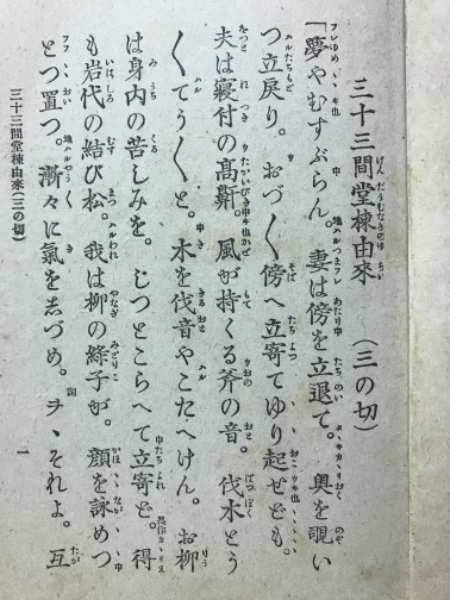 三十三間堂棟由來 （三の切）
「夢やむすぶらん。妻は傍を立退て。奥を覗い
つ立戻り。おづ〱傍へ立寄てゆり起せども。
夫は寢付の髙鼾。風が持くる斧の音。伐木とう
〱てう〱と。木を伐音やこたへけん。お柳
は身内の苦しみを。じつとこらへて立寄ど。得
も岩代の結び松。我は柳の綠子が。顔を詠めつ
とつ置つ。漸々に氣をゑづめ。ヲヽそれよ。互
三十三間堂棟由來（三の切）
一